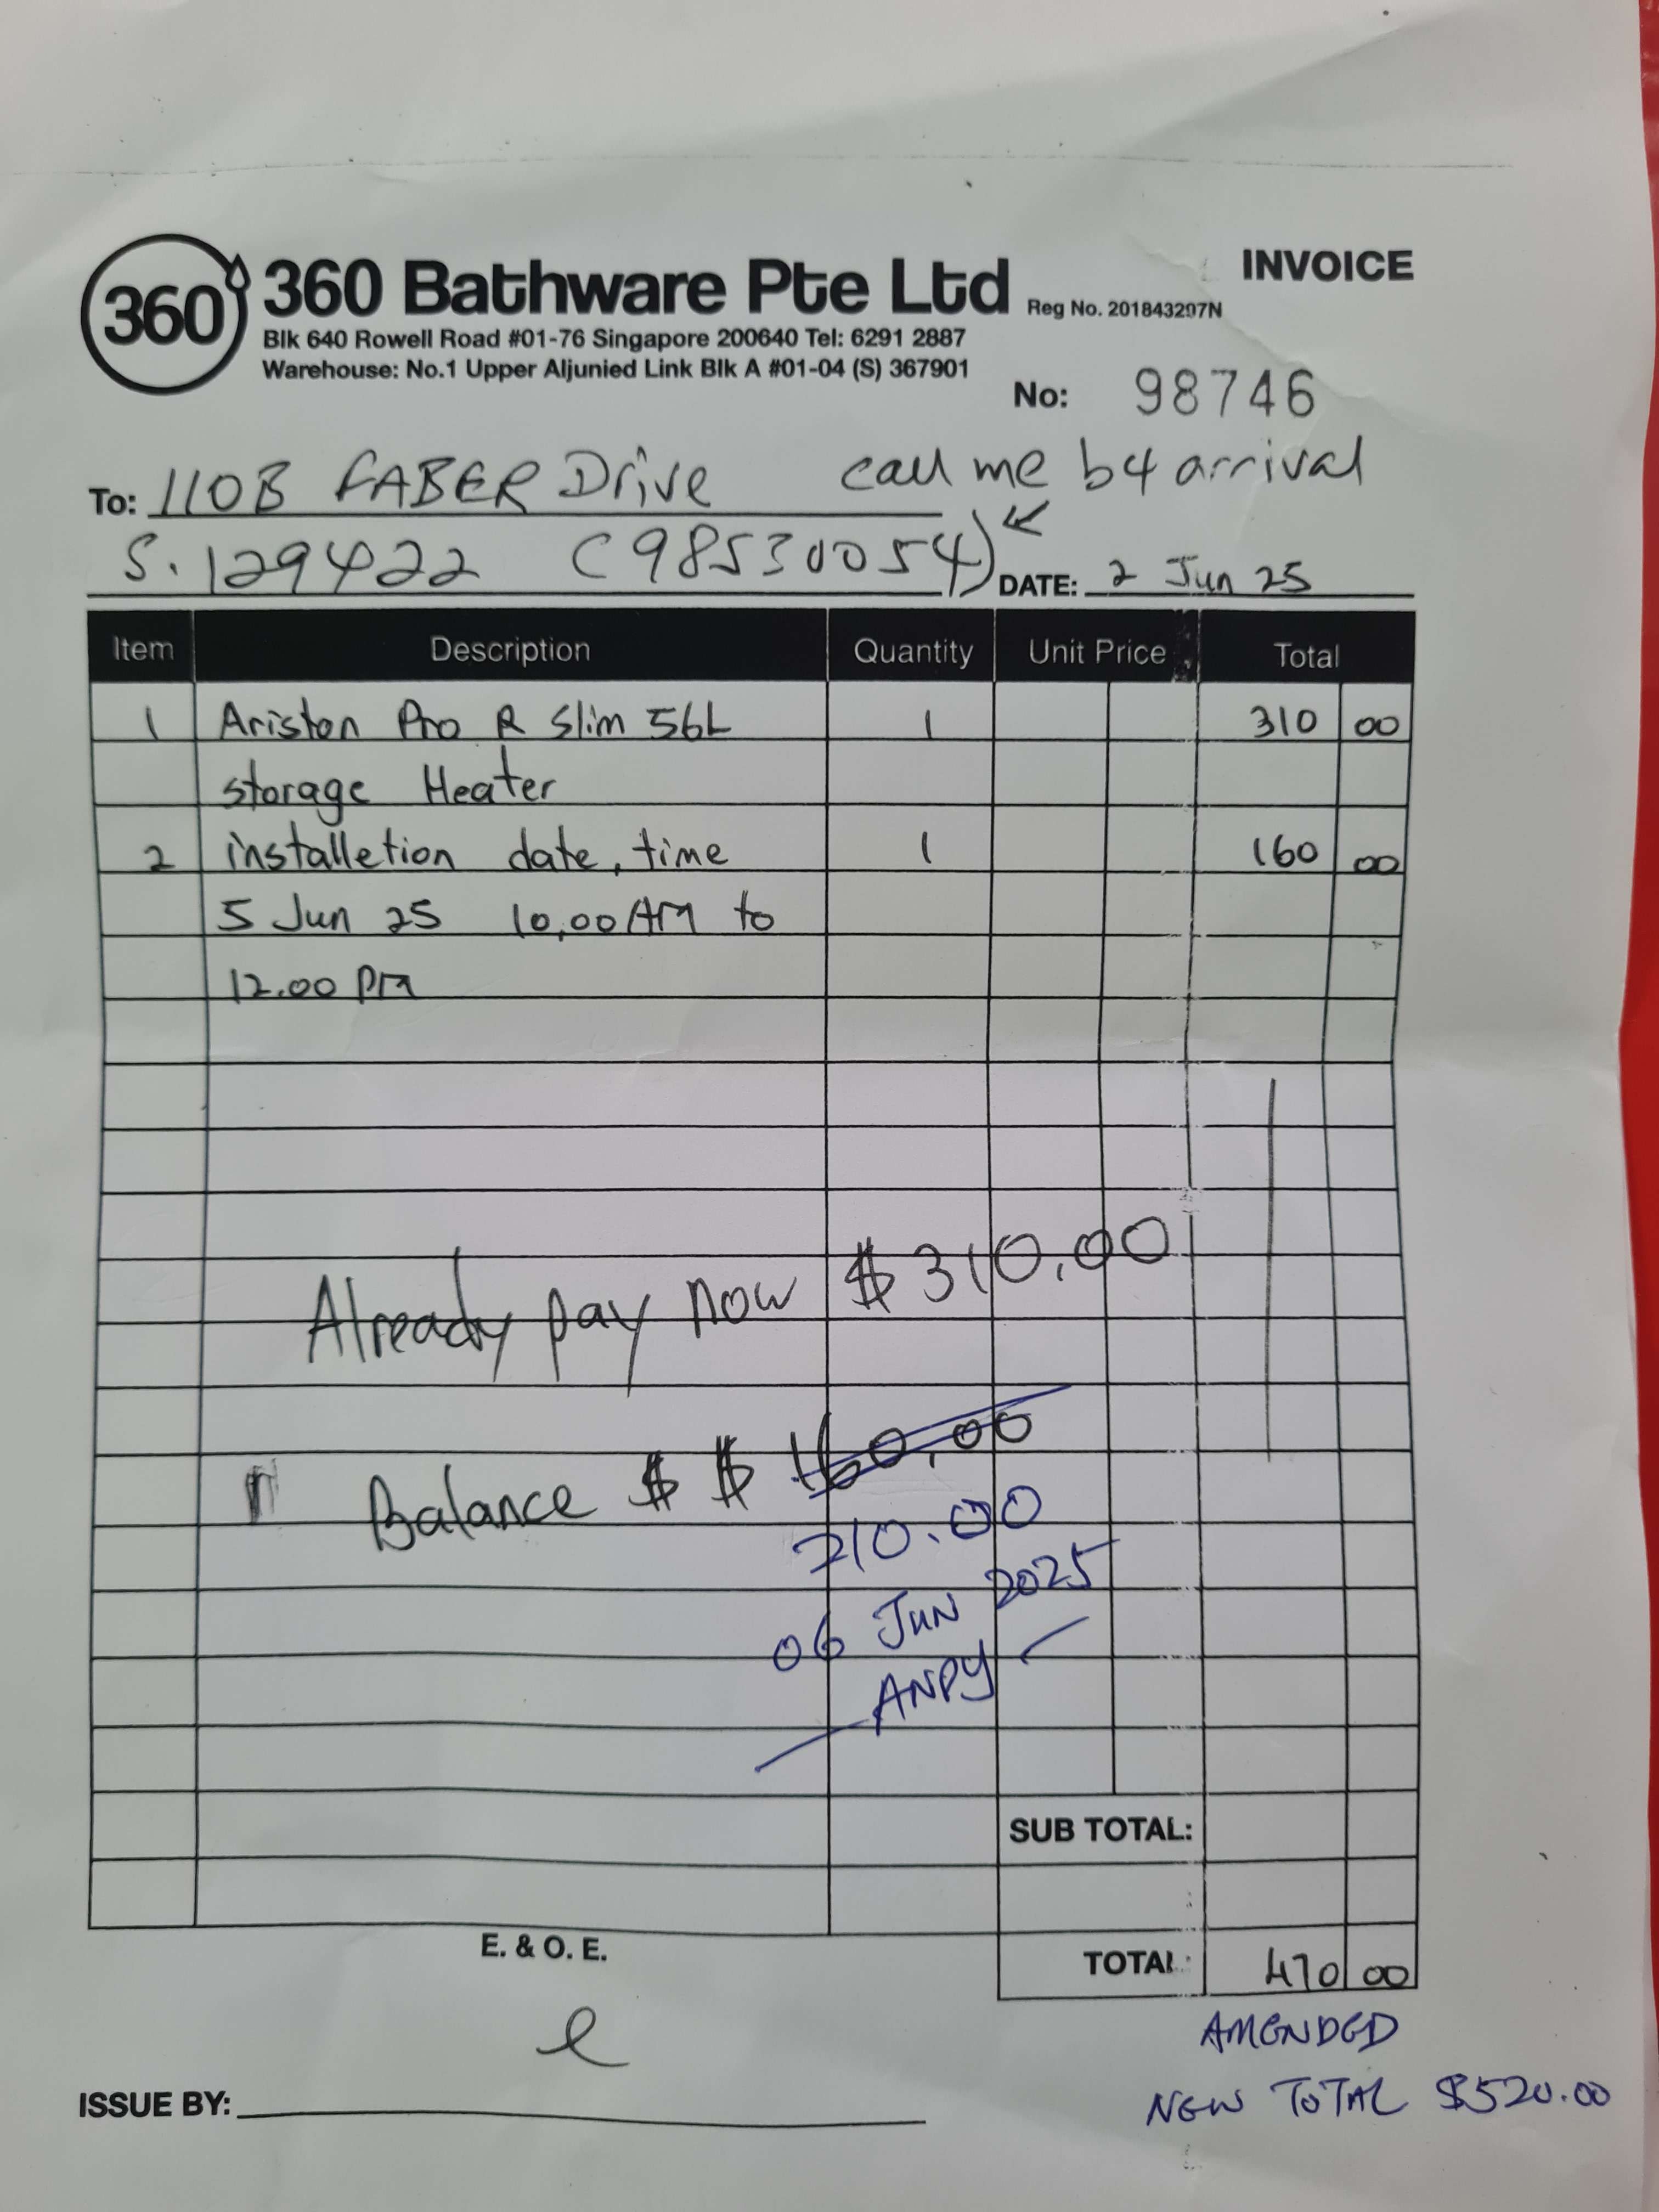 360
360 Bathware Pte Ltd
Reg No. 201843297N
INVOICE
Blk 640 Rowell Road #01-76 Singapore 200640 Tel: 6291 2887
Warehouse: No.1 Upper Aljunied Link Blk A #01-04 (S) 367901
No: 98746
call me b4 arrival
To: 110B FABER Drive
S. 129422 (98530054)
DATE: 2 Jun 25
Item Description Quantity Unit Price Total
1 Ariston Pro R Slim 56L 1 310 00
storage Heater
2 installetion date, time 1 160 00
5 Jun 25 10.00 AM to
12.00 PM
Already pay now $310.00
Balance $ $ 160.00
210.00
06 JUN 2025
ANDY
SUB TOTAL:
E. & O. E.
TOTAL: 470 00
AMENDED
NEW TOTAL $520.00
ISSUE BY: